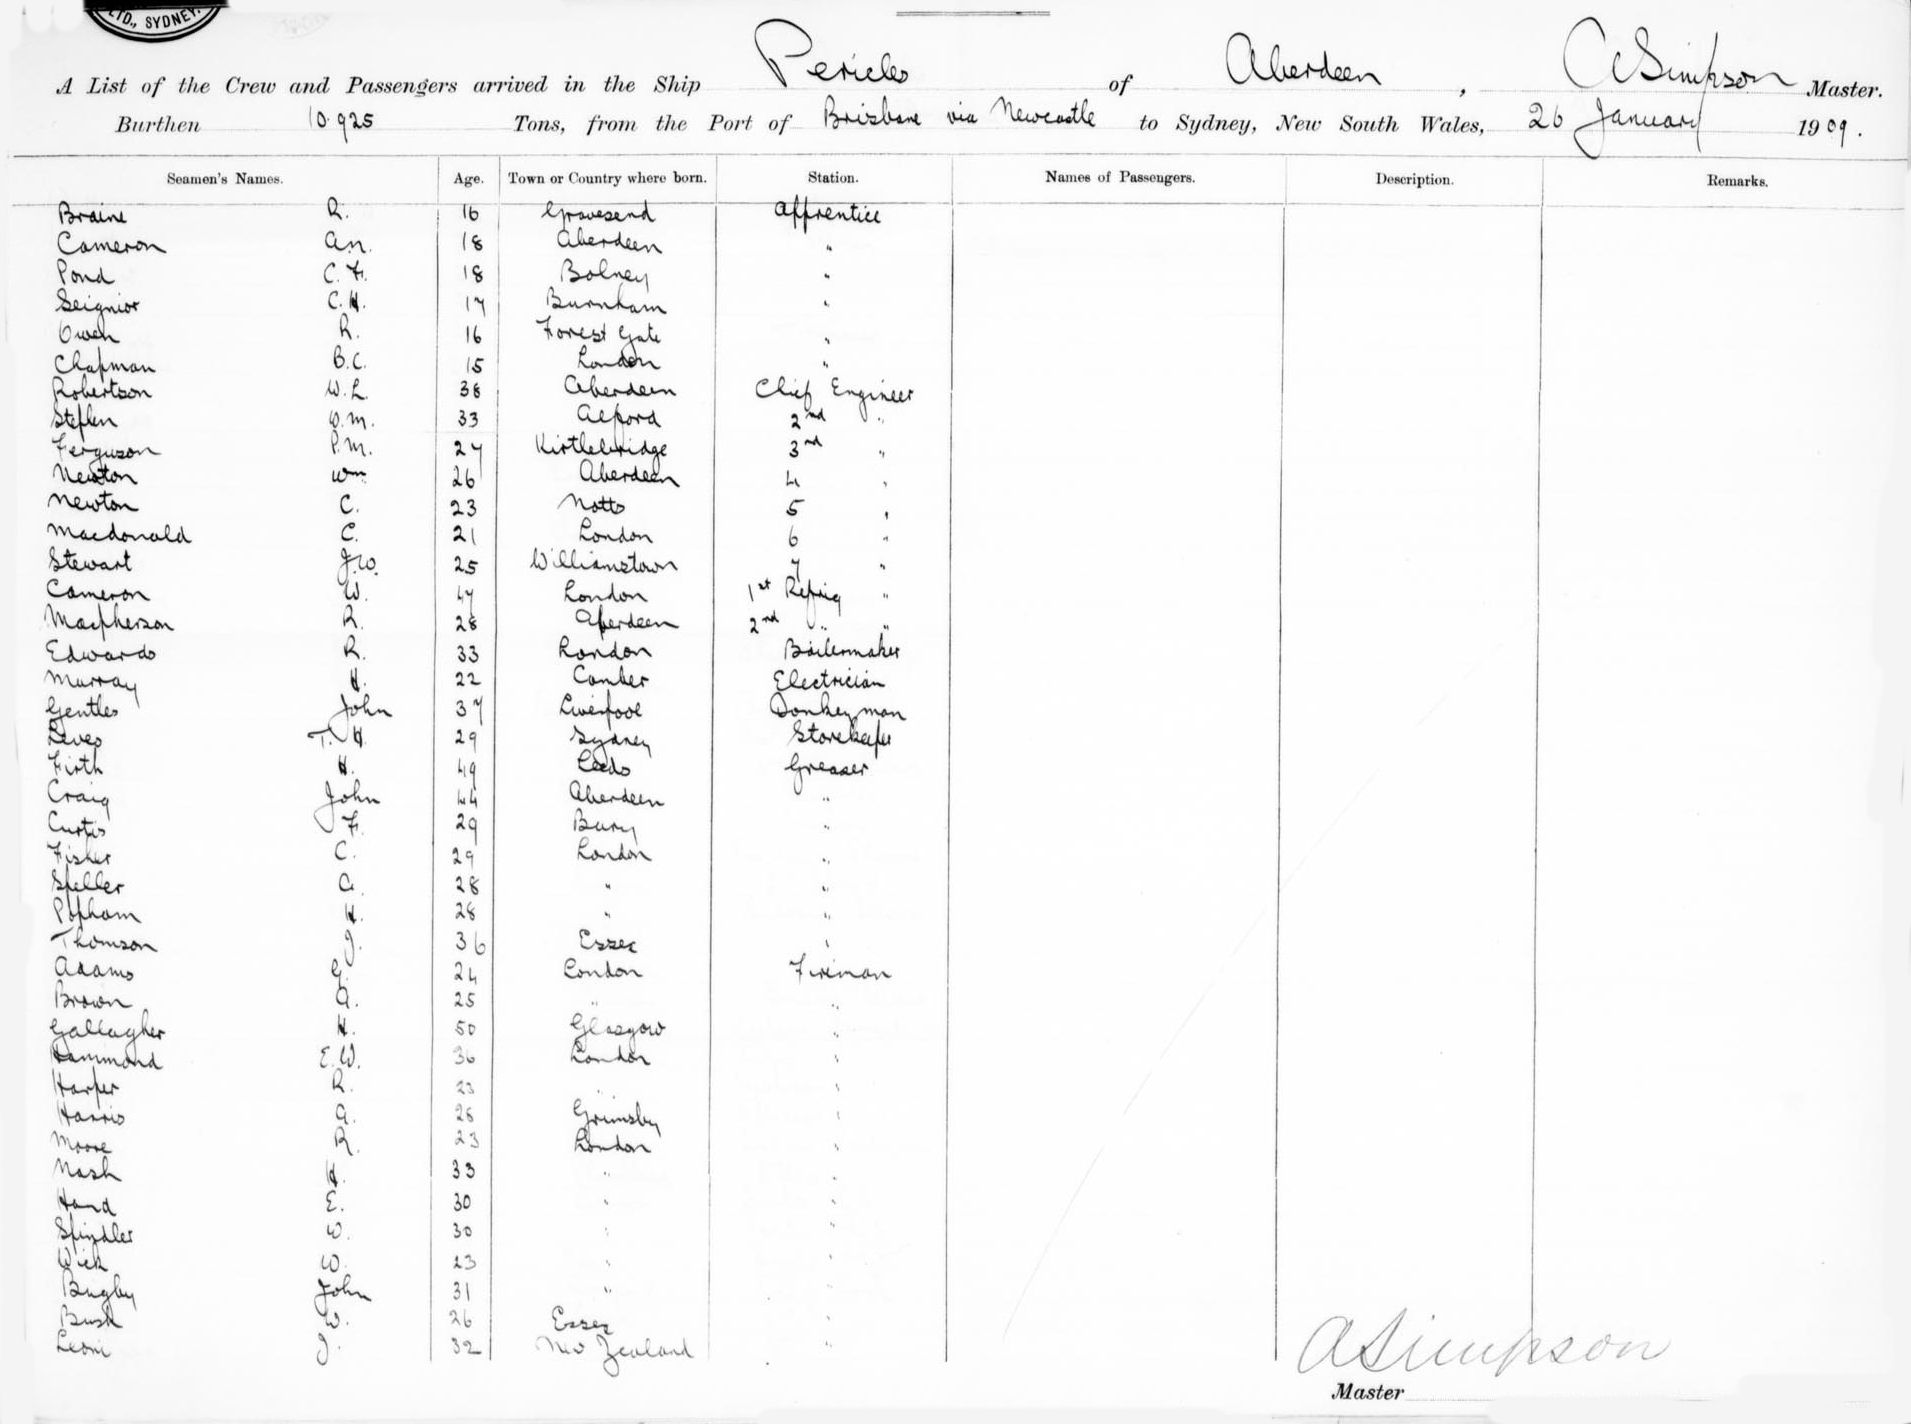 LTD., SYDNEY.
A List of the Crew and Passengers arrived in the Ship Pericles of Aberdeen, A Simpson Master.
Burthen 10.925 Tons, from the Port of Brisbane via Newcastle to Sydney, New South Wales, 26 January 1909.
Seamen's Names. Age. Town or Country where born. Station. Names of Passengers. Description. Remarks.
Braine R. 16 Gravesend Apprentice
Cameron A.N. 18 Aberdeen "
Pond C. F. 18 Bolney "
Seignior C.H. 17 Burnham "
Owen R. 16 Forest Gate "
Chapman B.C. 15 London "
Robertson W.L. 38 Aberdeen Chief Engineer
Stephen W.M. 33 Alford 2nd "
Ferguson P.M. 27 Kirtlebridge 3rd "
Newton Wm 26 Aberdeen 4 "
Newton C. 23 Notts 5 "
Macdonald C. 21 London 6 "
Stewart J.W. 25 Williamstown 7 "
Cameron W. 47 London 1st Refrig "
Macpherson R. 28 Aberdeen 2nd " "
Edwards R. 33 London Boilermaker
Murray H. 22 Comber Electrician
Gentles John 37 Liverpool Donkeyman
Leves T. H. 29 Sydney Storekeeper
Firth H. 49 Leeds Greaser
Craig John 44 Aberdeen "
Curtis F. 29 Bury "
Fisher C. 29 London "
Speller A. 28 " "
Popham H. 28 " "
Thomson J. 36 Essex "
Adams G. 24 London Fireman
Brown A. 25 " "
Gallagher H. 50 Glasgow "
Hammond E.W. 36 London "
Harper R. 23 " "
Harris A. 28 Grimsby "
Moore R. 23 London "
Nash H. 33 " "
Hand E. 30 " "
Spindler W. 30 " "
Wick W. 23 " "
Bugby John 31 " "
Bush W. 26 Essex "
Leoni J. 32 New Zealand "
A Simpson
Master